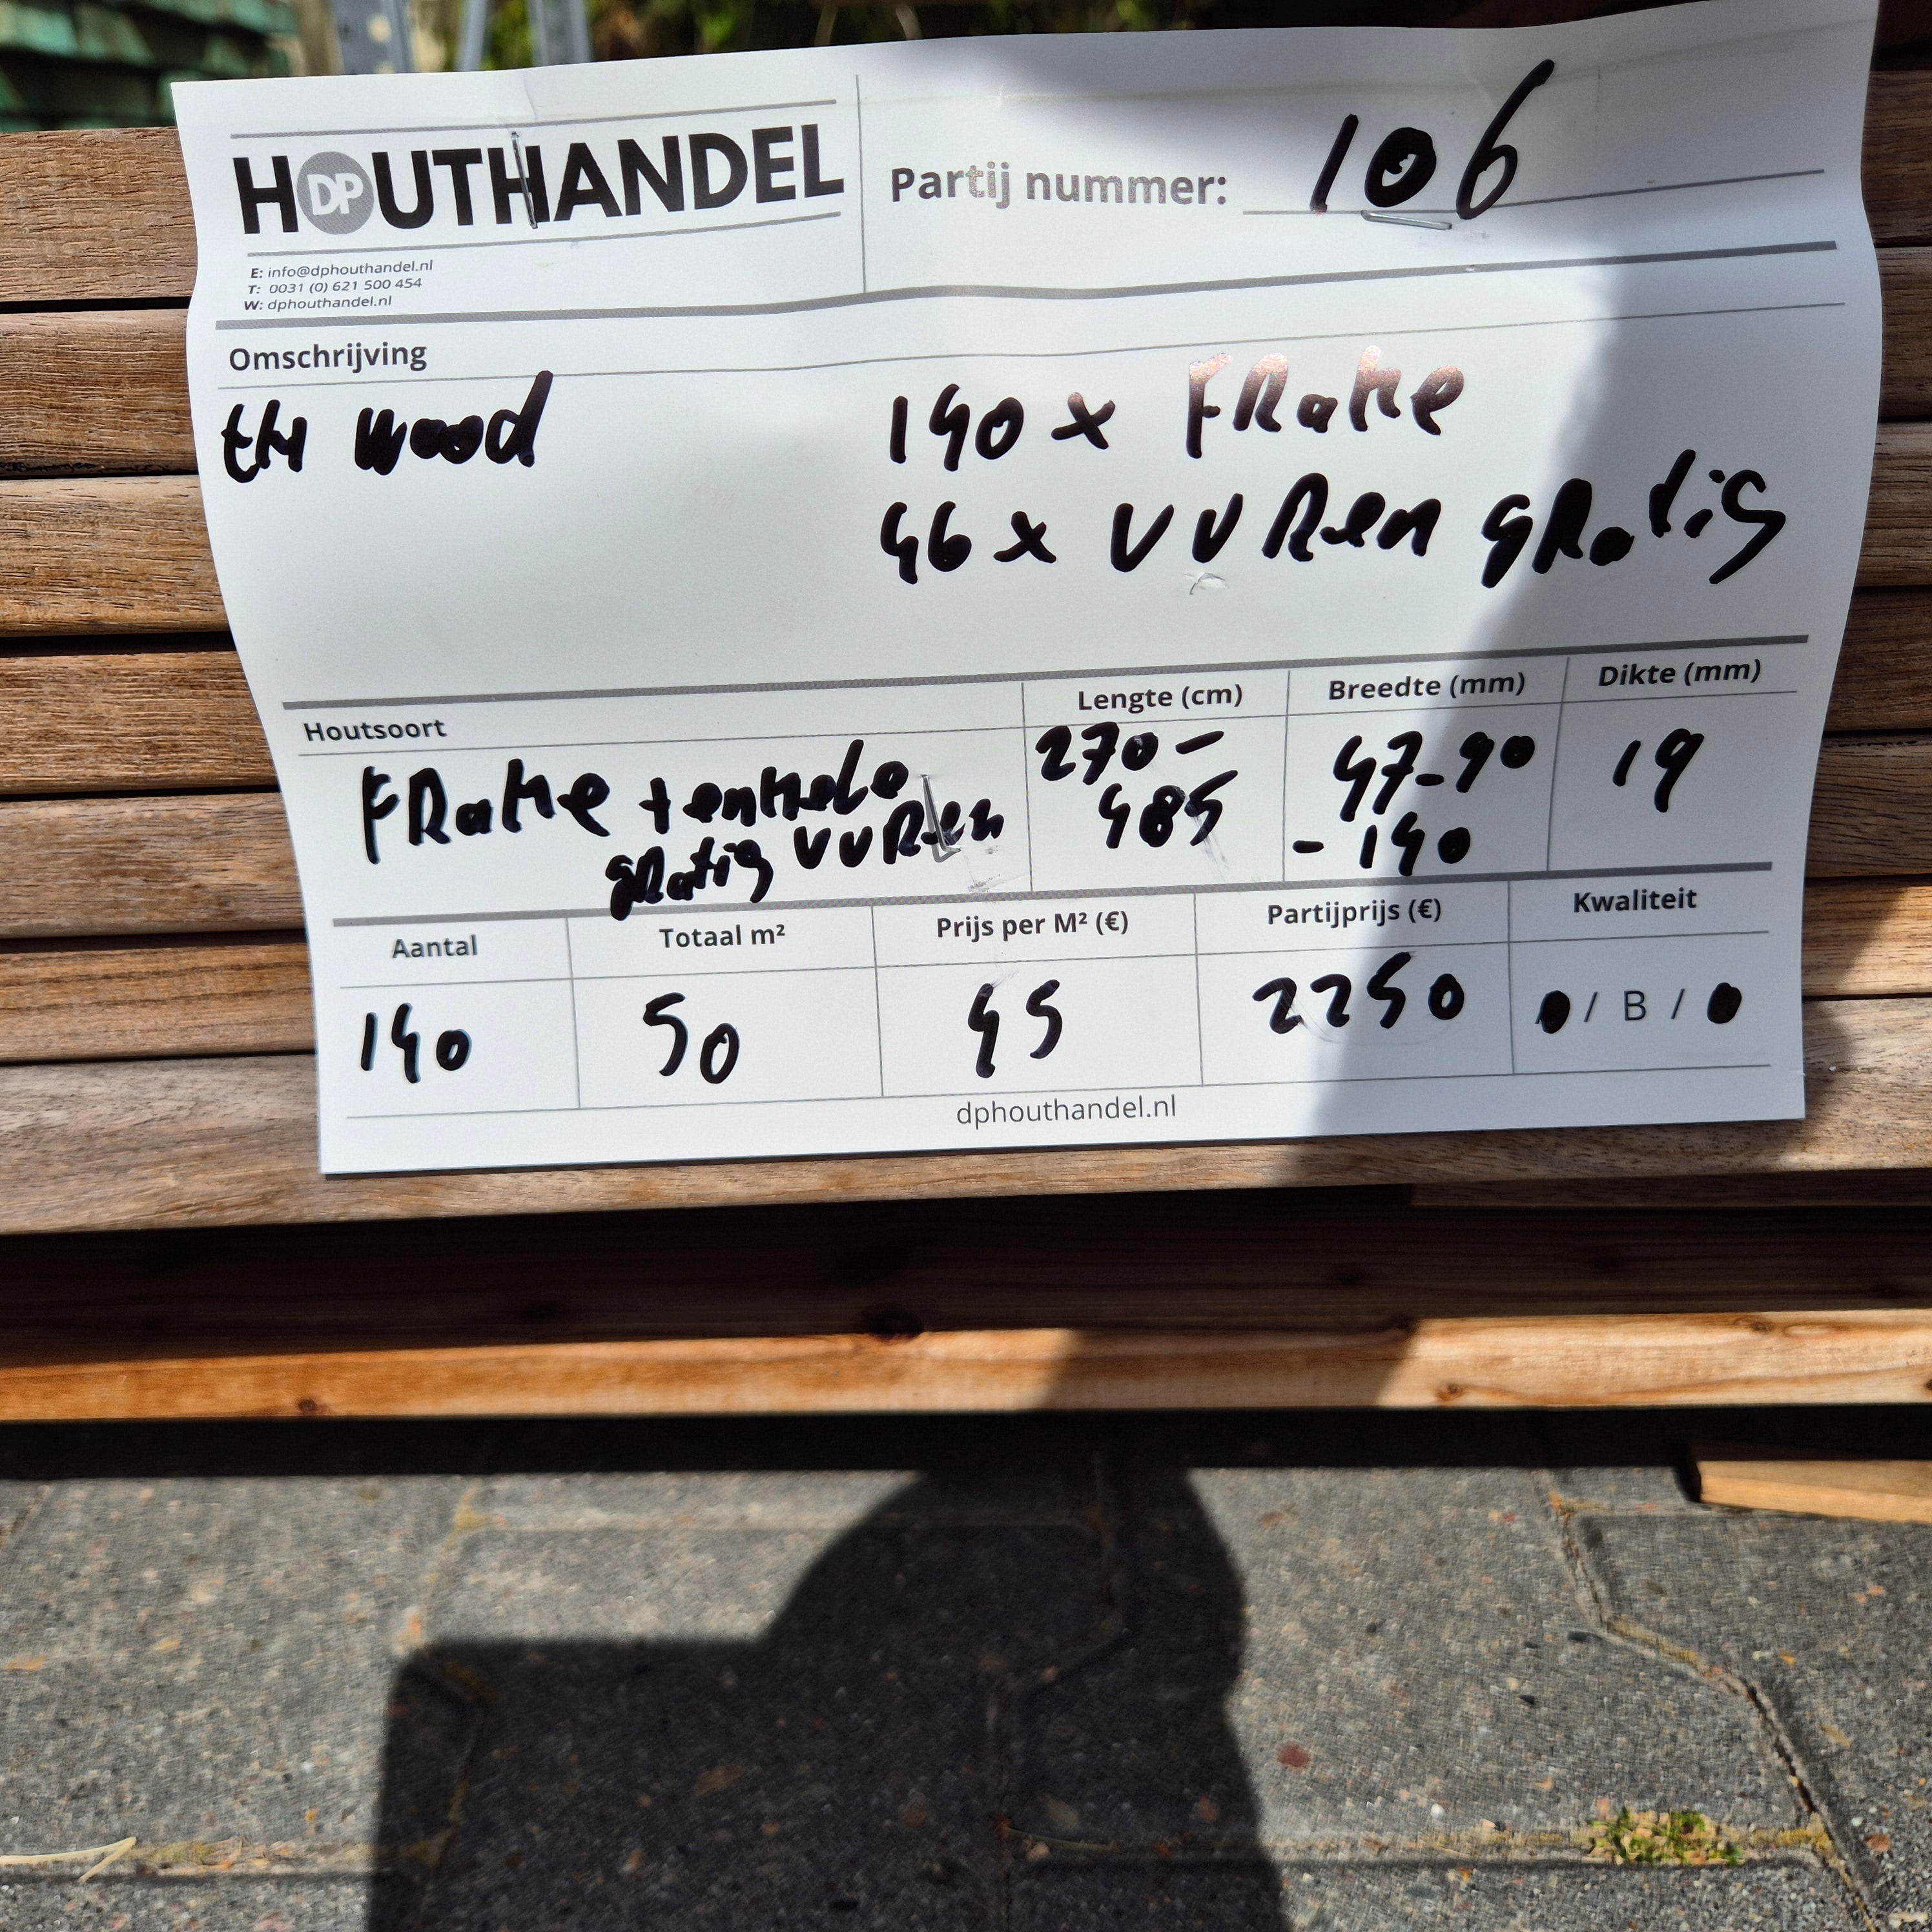 HOUTHANDEL
DP
E: info@dphouthandel.nl
T: 0031 (0) 621 500 454
W: dphouthandel.nl
Partij nummer: 106
Omschrijving
wood
140 x FRake
46 x VURen gRatig
Houtsoort
Lengte (cm)
Breedte (mm)
Dikte (mm)
FRake + enkele
gRatig VUREn
270 -
485
47-90
- 140
19
Aantal
Totaal m²
Prijs per M² (€)
Partijprijs (€)
Kwaliteit
140
50
45
2250
/ B /
dphouthandel.nl